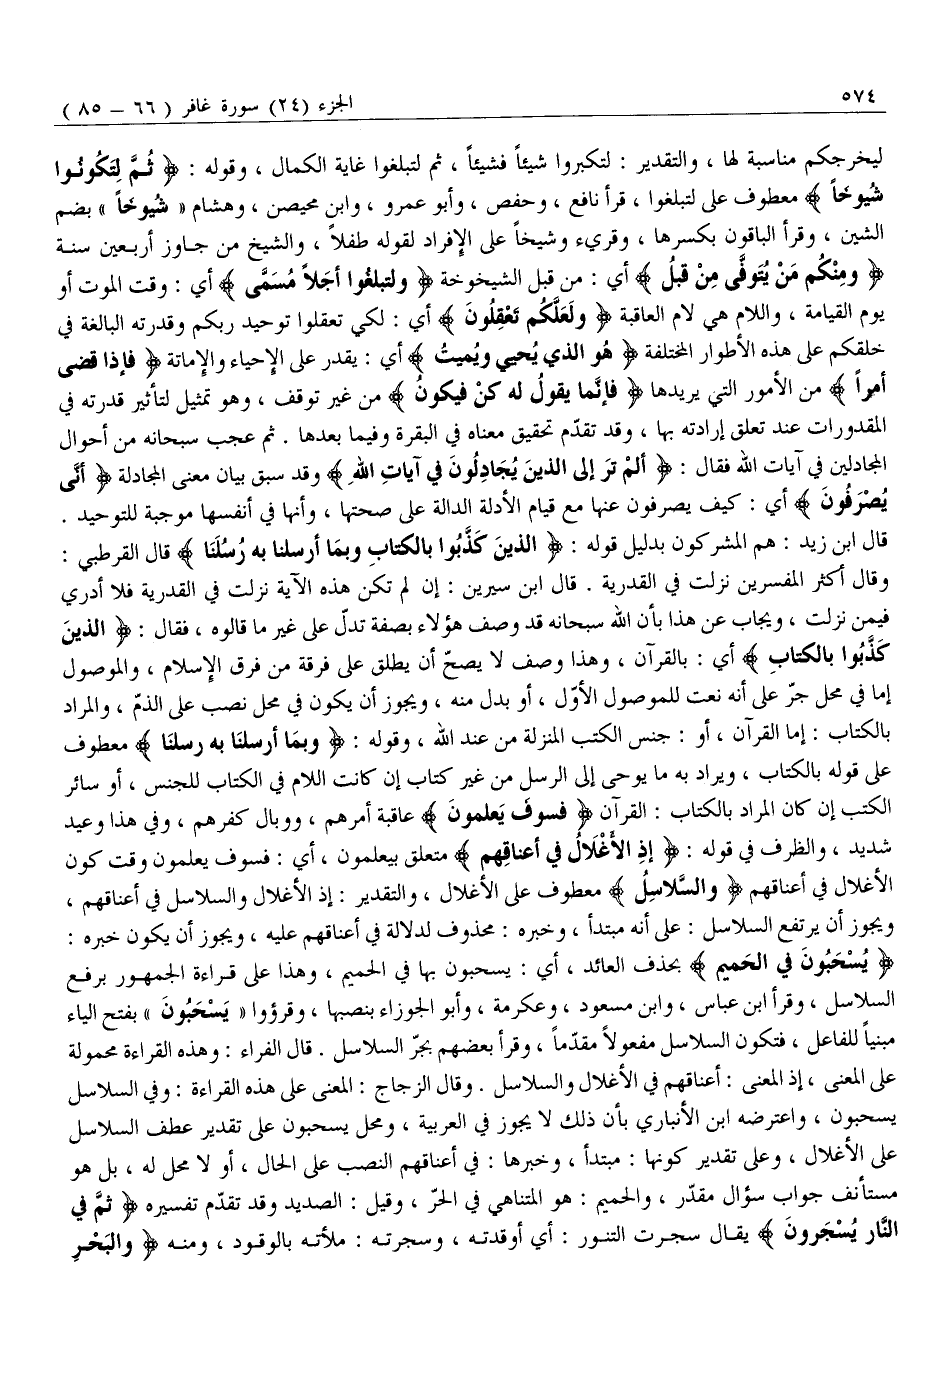 ٥٧٤
الجزء (٢٤) سورة غافر ( ٦٦ – ٨٥ )
ليخرجكم مناسبة لها ، والتقدير : لتكبروا شيئاً فشيئاً ، ثم لتبلغوا غاية الكمال ، وقوله : ﴿ ثُمَّ لِتَكُونُوا
شُيُوخَاً ﴾ معطوف على لتبلغوا ، قرأ نافع ، وحفص ، وأبو عمرو ، وابن محيصن ، وهشام « شُيوخَاً » بضم
الشين ، وقرأ الباقون بكسرها ، وقريء وشيخاً على الإفراد لقوله طفلاً ، والشيخ من جاوز أربعين سنة
﴿ ومِنْكُم مَنْ يُتَوفَّى مِنْ قبلُ ﴾ أي : من قبل الشيخوخة ﴿ ولتبلغُوا أجَلاً مُسَمَّى ﴾ أي : وقت الموت أو
يوم القيامة ، واللام هي لام العاقبة ﴿ ولَعَلَّكُم تَعْقِلُونَ ﴾ أي : لكي تعقلوا توحيد ربكم وقدرته البالغة في
خلقكم على هذه الأطوار المختلفة ﴿ هُو الذي يُحيي ويُميتُ ﴾ أي : يقدر على الإحياء والإماتة ﴿ فإذا قضى
أمراً ﴾ من الأمور التي يريدها ﴿ فإنَّما يقولُ له كنْ فيكونُ ﴾ من غير توقف ، وهو تمثيل لتأثير قدرته في
المقدورات عند تعلق إرادته بها ، وقد تقدّم تحقيق معناه في البقرة وفيما بعدها . ثم عجب سبحانه من أحوال
المجادلين في آيات الله فقال : ﴿ ألمْ تَرَ إلى الذينَ يُجَادِلُونَ في آياتِ اللهِ ﴾ وقد سبق بيان معنى المجادلة ﴿ أنَّى
يُصْرَفُونَ ﴾ أي : كيف يصرفون عنها مع قيام الأدلة الدالة على صحتها ، وأنها في أنفسها موجبة للتوحيد .
قال ابن زيد : هم المشركون بدليل قوله : ﴿ الذينَ كَذَّبُوا بالكتابِ وبمَا أرسلنا به رُسُلَنَا ﴾ قال القرطبي :
وقال أكثر المفسرين نزلت في القدرية . قال ابن سيرين : إن لم تكن هذه الآية نزلت في القدرية فلا أدري
فيمن نزلت ، ويجاب عن هذا بأن الله سبحانه قد وصف هؤلاء بصفة تدلّ على غير ما قالوه ، فقال : ﴿ الذينَ
كَذَّبُوا بالكتابِ ﴾ أي : بالقرآن ، وهذا وصف لا يصحّ أن يطلق على فرقة من فرق الإسلام ، والموصول
إما في محل جرّ على أنه نعت للموصول الأوّل ، أو بدل منه ، ويجوز أن يكون في محل نصب على الذمّ ، والمراد
بالكتاب : إما القرآن ، أو : جنس الكتب المنزلة من عند الله ، وقوله : ﴿ وبمَا أرسلنَا به رسلنَا ﴾ معطوف
على قوله بالكتاب ، ويراد به ما يوحى إلى الرسل من غير كتاب إن كانت اللام في الكتاب للجنس ، أو سائر
الكتب إن كان المراد بالكتاب : القرآن ﴿ فسوفَ يَعلمونَ ﴾ عاقبة أمرهم ، ووبال كفرهم ، وفي هذا وعيد
شديد ، والظرف في قوله : ﴿ إذِ الأَغْلَالُ في أعناقِهم ﴾ متعلق بيعلمون ، أي : فسوف يعلمون وقت كون
الأغلال في أعناقهم ﴿ والسَّلاسِلُ ﴾ معطوف على الأغلال ، والتقدير : إذ الأغلال والسلاسل في أعناقهم ،
ويجوز أن يرتفع السلاسل : على أنه مبتدأ ، وخبره : محذوف لدلالة في أعناقهم عليه ، ويجوز أن يكون خبره :
﴿ يُسْحَبُونَ في الحَميمِ ﴾ بحذف العائد ، أي : يسحبون بها في الحميم ، وهذا على قراءة الجمهور برفع
السلاسل ، وقرأ ابن عباس ، وابن مسعود ، وعكرمة ، وأبو الجوزاء بنصبها ، وقرؤوا « يَسْحَبُونَ » بفتح الياء
مبنياً للفاعل ، فتكون السلاسل مفعولاً مقدّماً ، وقرأ بعضهم بجرّ السلاسل . قال الفراء : وهذه القراءة محمولة
على المعنى ، إذ المعنى : أعناقهم في الأغلال والسلاسل . وقال الزجاج : المعنى على هذه القراءة : وفي السلاسل
يسحبون ، واعترضه ابن الأنباري بأن ذلك لا يجوز في العربية ، ومحل يسحبون على تقدير عطف السلاسل
على الأغلال ، وعلى تقدير كونها : مبتدأ ، وخبرها : في أعناقهم النصب على الحال ، أو لا محل له ، بل هو
مستأنف جواب سؤال مقدّر ، والحميم : هو المتناهي في الحرّ ، وقيل : الصديد وقد تقدّم تفسيره ﴿ ثمَّ في
النَّار يُسْجَرونَ ﴾ يقال سجرت التنور : أي أوقدته ، وسجرته : ملأته بالوقود ، ومنه ﴿ والبَحْرِ